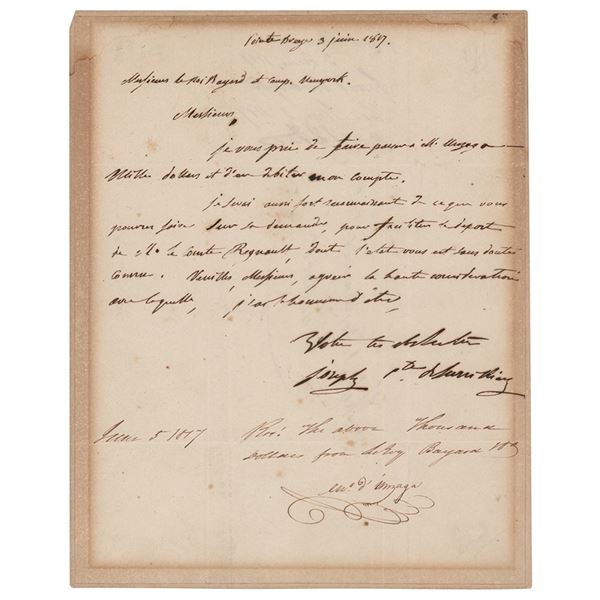 Pointe Breeze 3 juin 1817.
Messieurs le Roi Bayard et comp. Newyork.
Messieurs,
je vous prie de faire passer à Mr Unzaga
Mille dollars et d'en debiter mon compte.
je serai aussi fort reconnaissant de ce que vous
pourrez faire sur sa demande, pour faciliter le depart
de Mr le Comte Regnault, dont l'etat vous est sans doute
connu. Veuillez Messieurs, agréer la haute consideration
avec laquelle, j'ai l'honneur d'être,
Votre tres
joseph cte de Survilliers
June 5 1817
Recd the above Thousand
Dollars from LeRoy Bayard
d'Unzaga